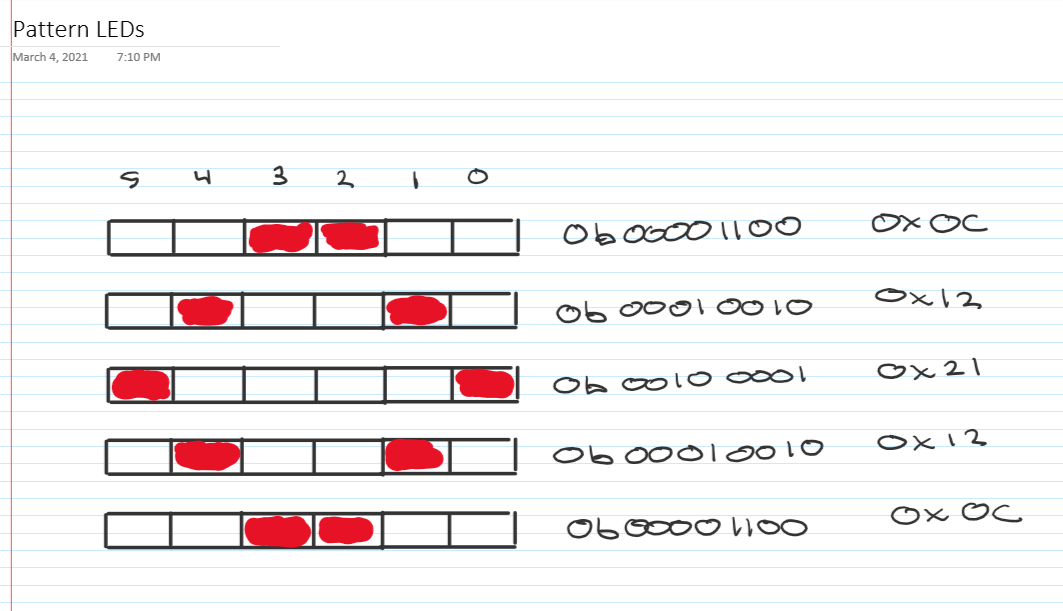 Pattern LEDs
March 4, 2021 7:10 PM
5 4 3 2 1 0
0b00001100 0x0C
0b00010010 0x12
0b00100001 0x21
0b00010010 0x12
0b00001100 0x0C